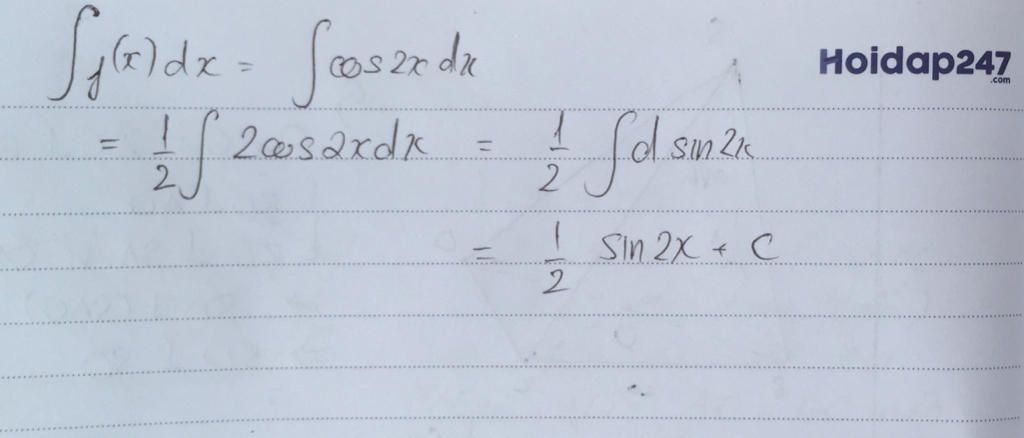 ∫f(x)dx = ∫cos2x dx
Hoidap247
.com
= 1/2 ∫ 2cos2xdx = 1/2 ∫d sin2x
= 1/2 sin2x + C